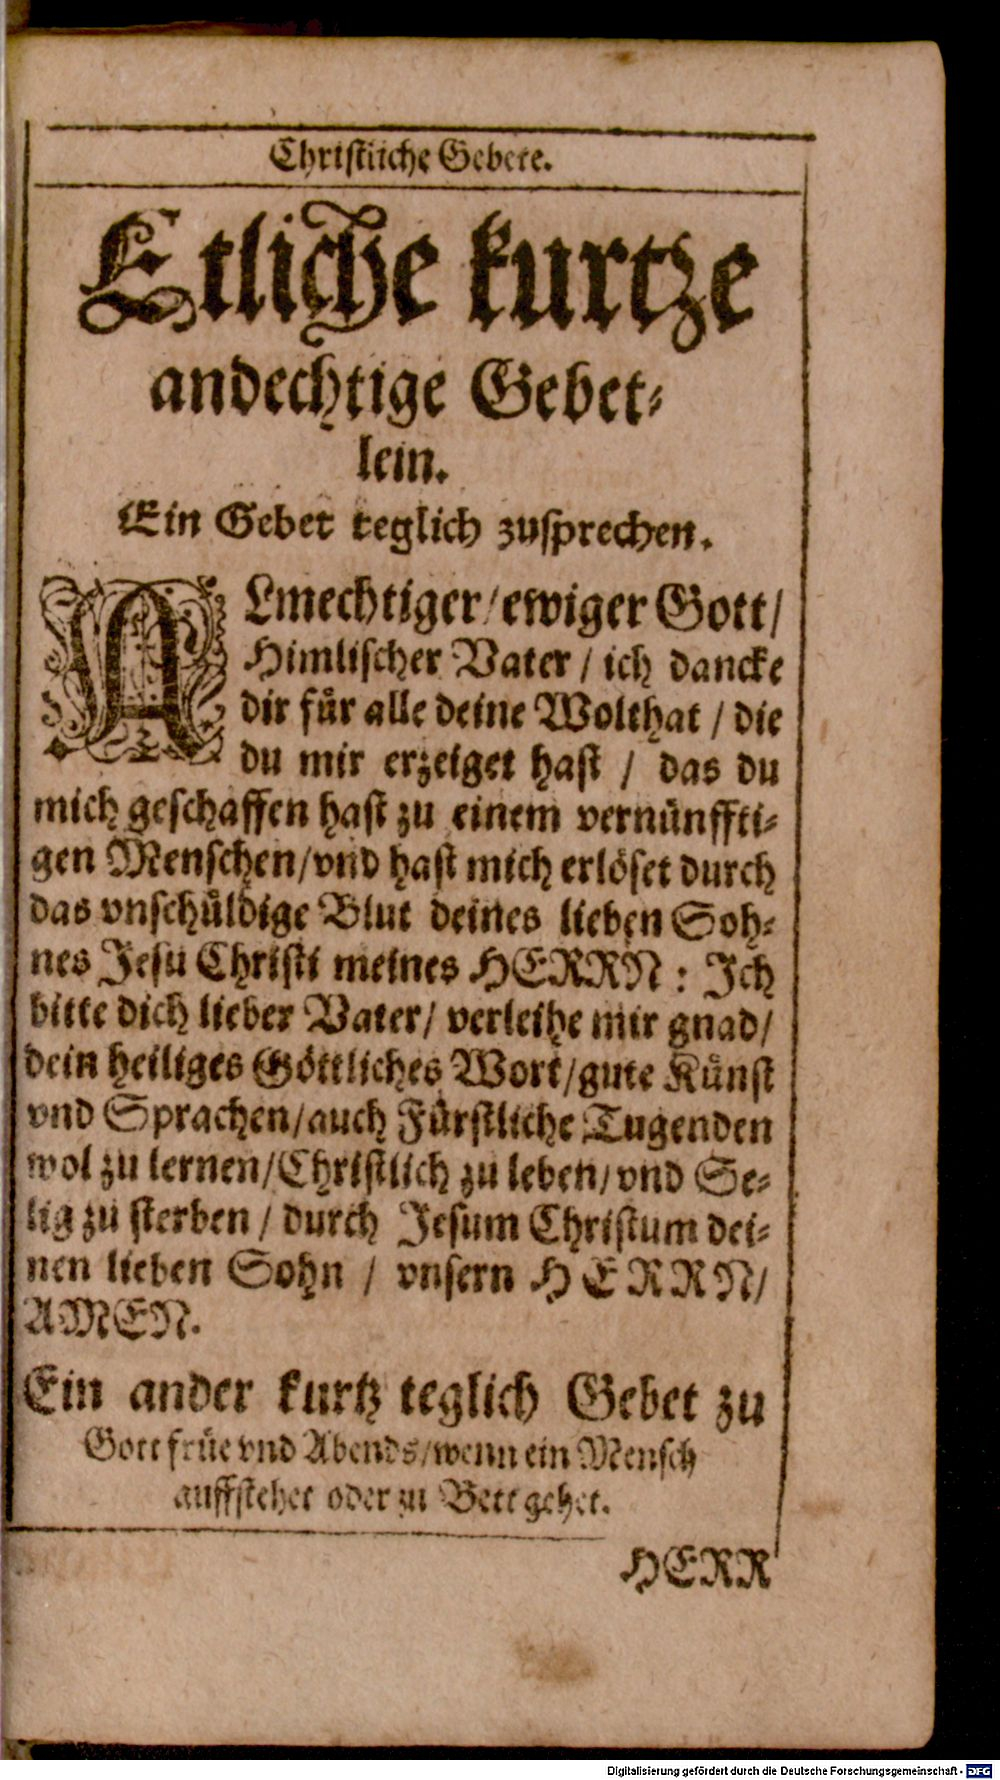 Christliche Gebete.
Etliche kurtze
andechtige Gebet-
lein.
Ein Gebet teglich zusprechen.
ALmechtiger/ewiger Gott/
Himlischer Vater / ich dancke
dir für alle deine Wolthat / die
du mir erzeiget hast / das du
mich geschaffen hast zu einem vernünffti-
gen Menschen/vnd hast mich erlöset durch
das vnschüldige Blut deines lieben Soh-
nes Jesu Christi meines HERRN : Ich
bitte dich lieber Vater/ verleihe mir gnad/
dein heiliges Göttliches Wort/gute Künst
vnd Sprachen/auch Fürstliche Tugenden
wol zu lernen/Christlich zu leben/vnd Se-
lig zu sterben / durch Jesum Christum dei-
nen lieben Sohn / vnsern HERRN/
AMEN.
Ein ander kurtz teglich Gebet zu
Gott früe vnd Abends/wenn ein Mensch
auffstehet oder zu Bett gehet.
HERR
Digitalisierung gefördert durch die Deutsche Forschungsgemeinschaft - DFG